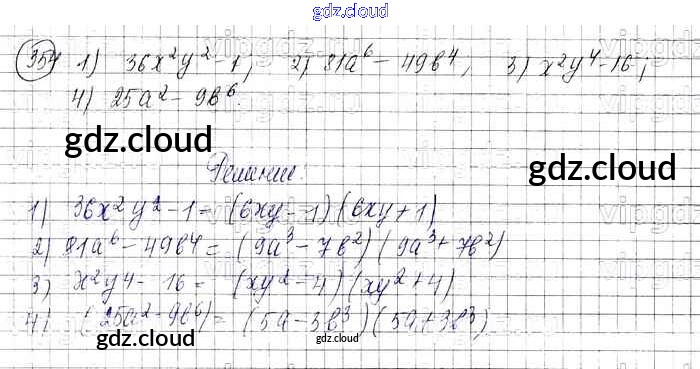 gdz.cloud
354 1) 36x²y² - 1; 2) 81a⁶ - 49b⁴; 3) x²y⁴ - 16;
4) 25a² - 9b⁶.
gdz.cloud
gdz.cloud
Решение:
1) 36x²y² - 1 = (6xy - 1)(6xy + 1)
2) 81a⁶ - 49b⁴ = (9a³ - 7b²)(9a³ + 7b²)
3) x²y⁴ - 16 = (xy² - 4)(xy² + 4)
4) (25a² - 9b⁶) = (5a - 3b³)(5a + 3b³)
gdz.cloud
gdz.cloud
gdz.cloud